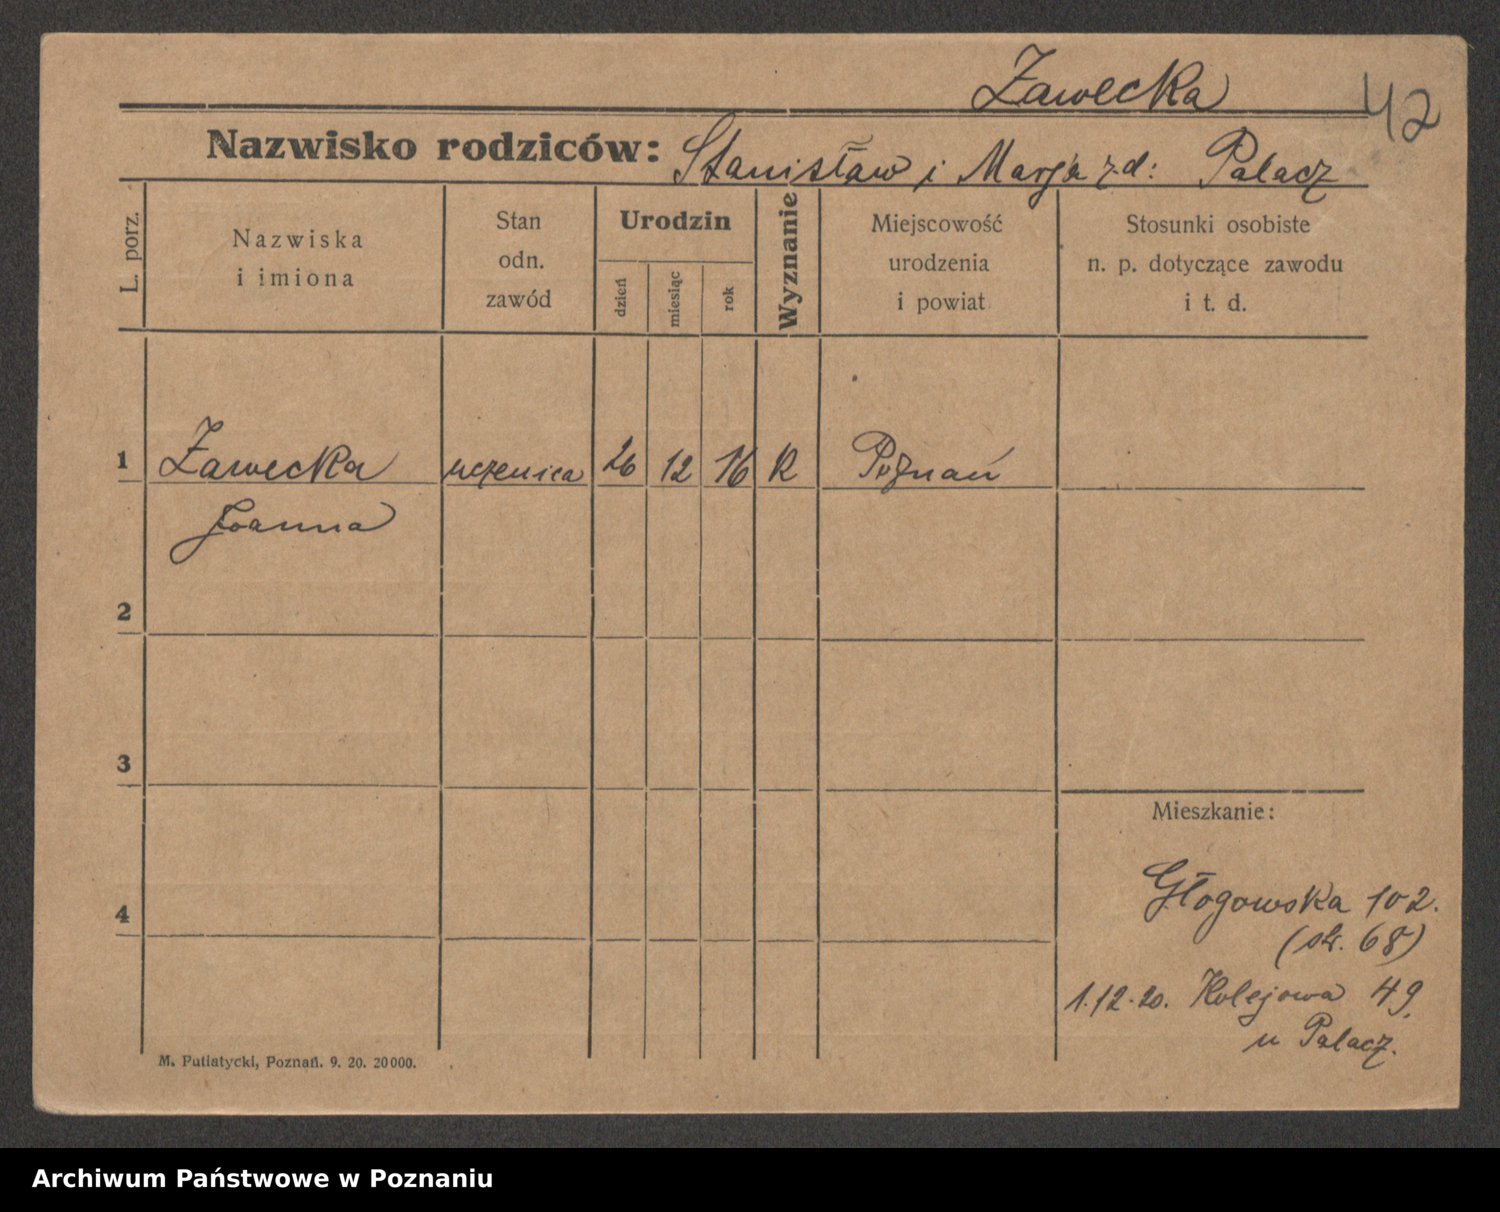 Zawecka
42
Nazwisko rodziców: Stanisław i Marja z.d: Palacz
L. porz.
Nazwiska
i imiona
Stan
odn.
zawód
Urodzin
dzień
miesiąc
rok
Wyznanie
Miejscowość
urodzenia
i powiat
Stosunki osobiste
n. p. dotyczące zawodu
i t. d.
1 Zawecka uczenica 26 12 16 R Poznań
Joanna
2
3
Mieszkanie:
4
Głogowska 102.
(str. 68)
1.12.20. Kolejowa 49.
u Palacz.
M. Putiatycki, Poznań. 9. 20. 20000.
Archiwum Państwowe w Poznaniu